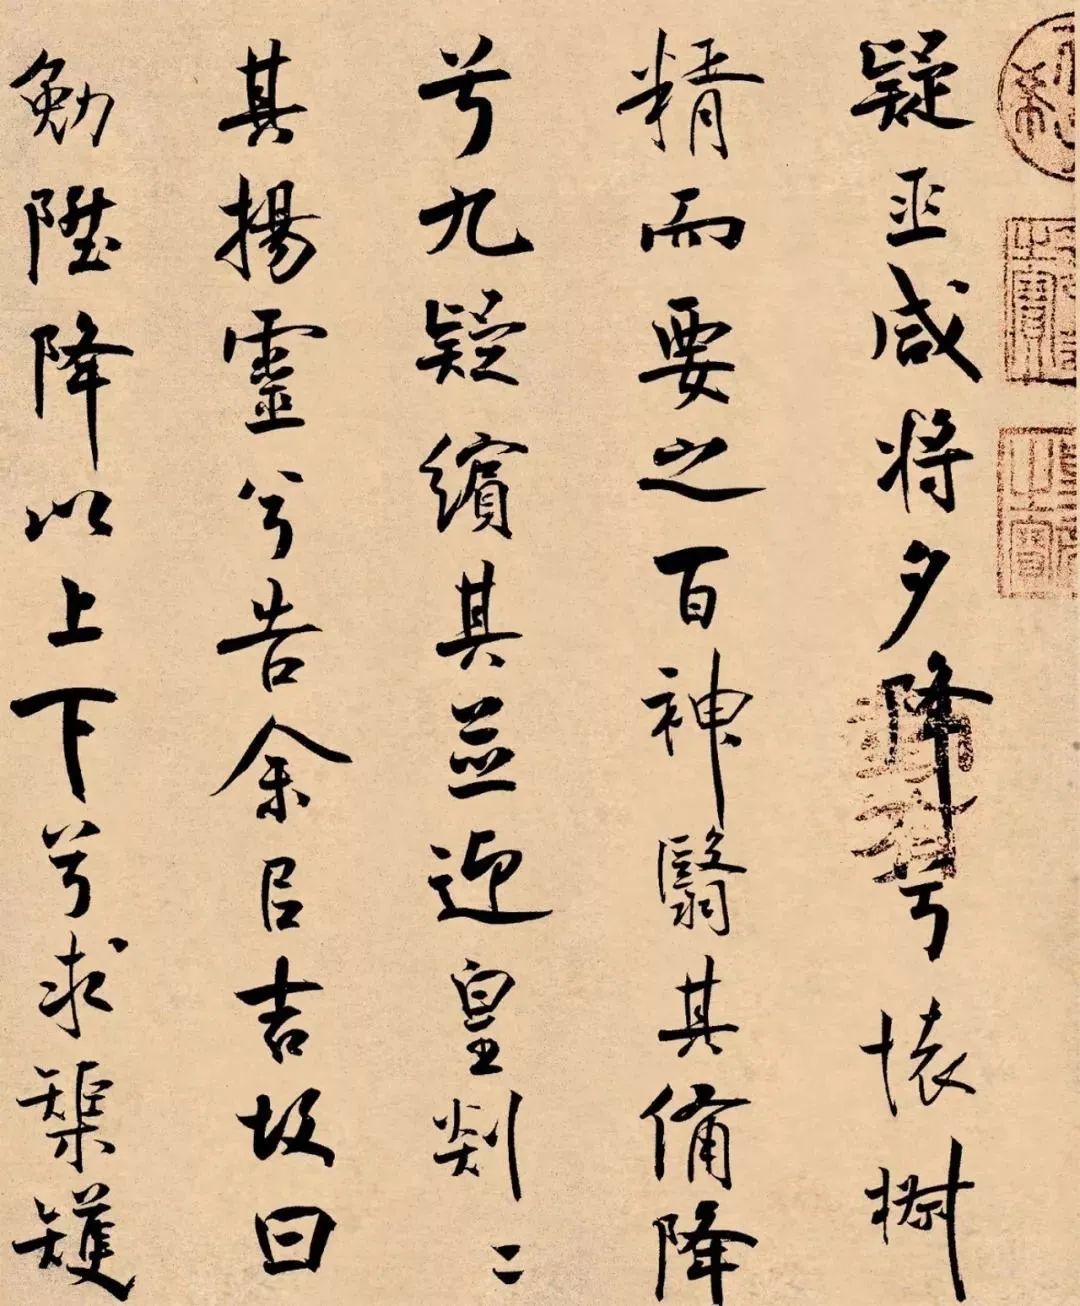 疑巫咸将夕降兮懐椒
精而要之百神翳其俻降
兮九疑繽其並迎皇剡二
其揚靈兮告余㠯吉故曰
勉陞降以上下兮求榘矱